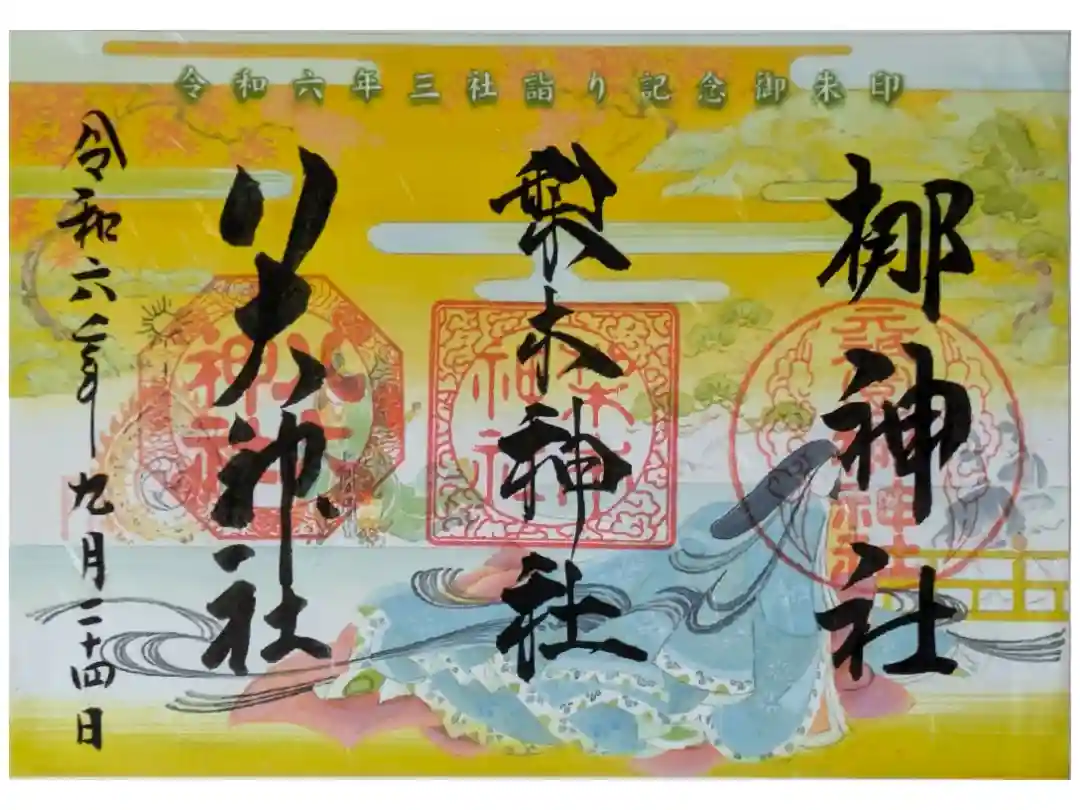 令和六年三社詣り記念御朱印
梛神社
梨木神社
八大神社
令和六年九月二十四日